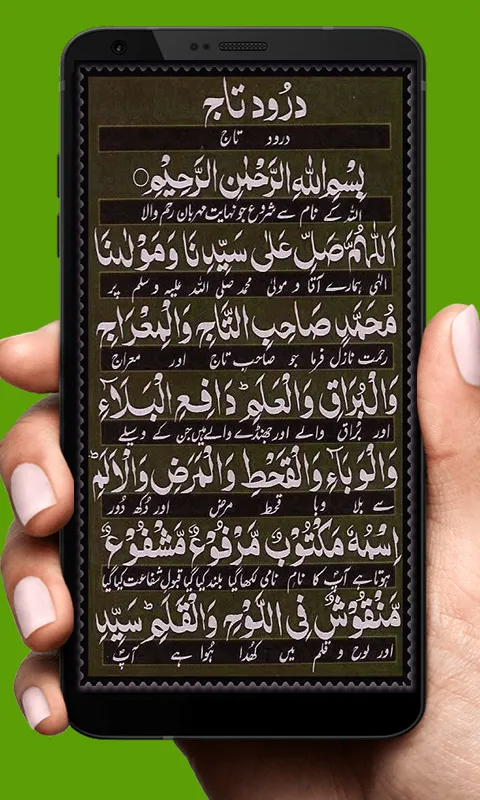 درُود تاج
درود تاج
بِسْمِ اللهِ الرَّحْمٰنِ الرَّحِيْمِ○
اللہ کے نام سے شروع جو نہایت مہربان رحم والا
اَللّٰهُمَّ صَلِّ عَلٰى سَيِّدِنَا وَمَوْلٰىنَا
الہٰی ہمارے آقا و مولیٰ محمد صلی اللہ علیہ وسلم پر
مُحَمَّدٍ صَاحِبِ التَّاجِ وَالْمِعْرَاجِ
رحمت نازل فرما جو صاحب تاج اور معراج
وَالْبُرَاقِ وَالْعَلَمِؕ دَافِعِ الْبَلَآءِ
اور بُراق والے اور جھنڈے والے ہیں جن کے وسیلے
وَالْوَبَآءِ وَالْقَحْطِ وَالْمَرَضِ وَالْاَلَمِؕ
سے بلا وبا قحط مرض اور دُکھ دُور
اِسْمُهٗ مَكْتُوْبٌ مَّرْفُوْعٌ مَّشْفُوْعٌ
ہوتا ہے آپؐ کا نام نامی لکھا گیا بلند کیا گیا قبول شفاعت کیا گیا
مَّنْقُوْشٌ فِى اللَّوْحِ وَالْقَلَمِؕ سَيِّدِ
اور لوح و قلم میں کھُدا ہُوا ہے آپؐ